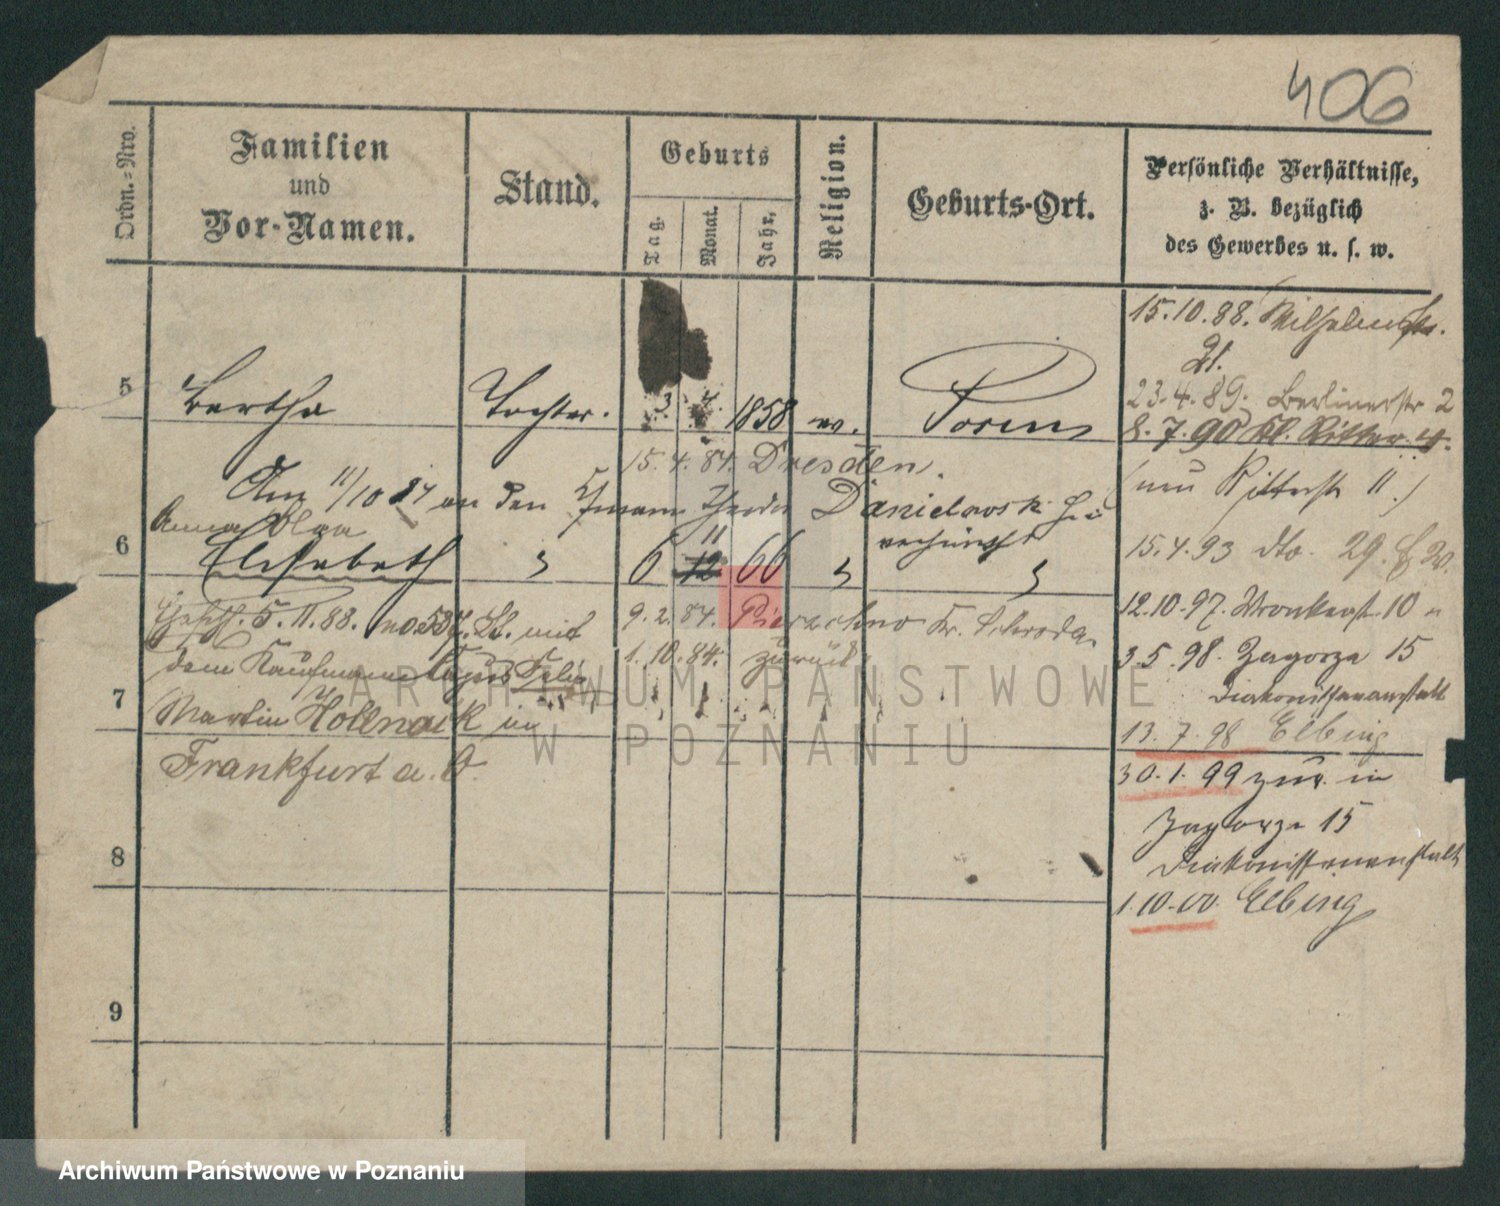 406
Ordn.=Nro.
Familien
und
Vor-Namen.
Stand.
Geburts
Tag.
Monat.
Jahr.
Religion.
Geburts-Ort.
Persönliche Verhältnisse,
z. B. bezüglich
des Gewerbes u. s. w.
5
Bertha
Tochter.
3 4. 1858
ev.
Posen
15.4.84. Dresden.
Am 11/10 84 an den Theodor Danielowski
Anna Olga
6
Elisabeth
6
11
12
66
9.2.84. Pierzchno Kr. Schroda
1.10.84. zurück
5.11.88. no 537. mit
dem Kaufmann Felix
7
Martin Hollnack in
Frankfurt a. O.
8
9
15.10.88. Wilhelmstr.
21.
23.4.89. Berlinerstr 2
8.7.90 Kl. Ritter 4.
(neu Ritterstr 11.)
15.4.93 dto. 29.
12.10.97. Wronkerstr. 10
3.5.98. Zagorze 15
Diakonissenanstalt
13.7.98 Elbing
30.1.99 zur. in
Zagorze 15
Diakonissenanstalt
1.10.00. Elbing
ARCHIWUM PAŃSTWOWE
W POZNANIU
Archiwum Państwowe w Poznaniu